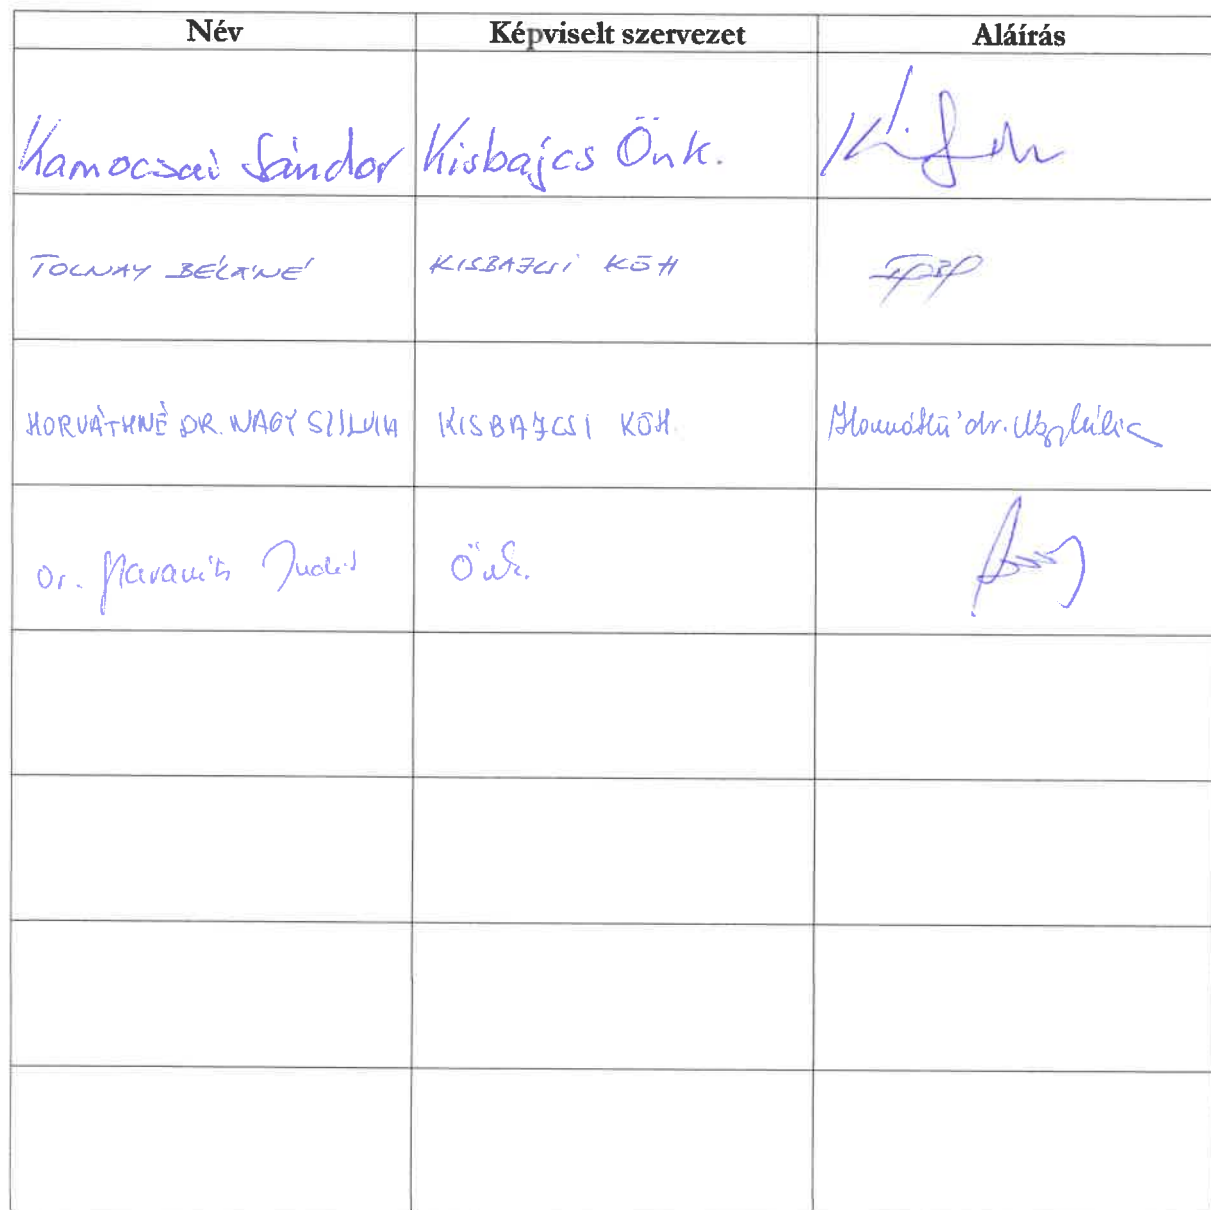 Név Képviselt szervezet Aláírás
Kamocsai Sándor Kisbajcs Önk.
TOLNAY BÉLÁNÉ KISBAJCSI KÖH
HORVÁTHNÉ DR. NAGY SZILVIA KISBAJCSI KÖH
Dr. Judit Önk.